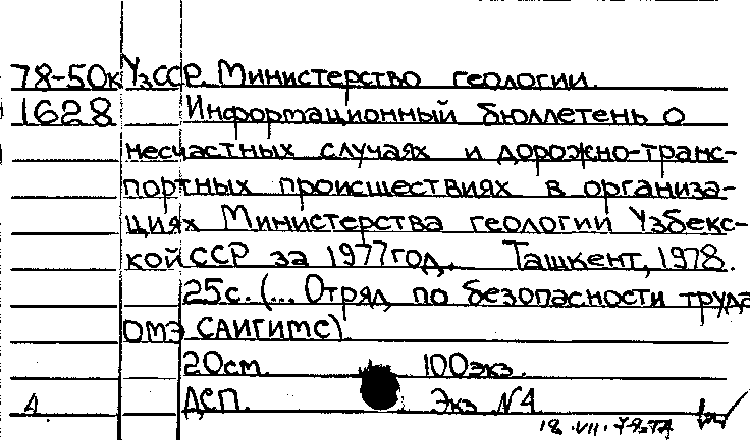 78-50к УзССР. Министерство геологии.
1628 Информационный бюллетень о
несчастных случаях и дорожно-транс-
портных происшествиях в организа-
циях Министерства геологии Узбекс-
кой ССР за 1977 год. Ташкент, 1978.
25с. (... Отряд по безопасности труда
ОМЭ САИГИМС).
20см. 100экз.
ДСП. Экз №4